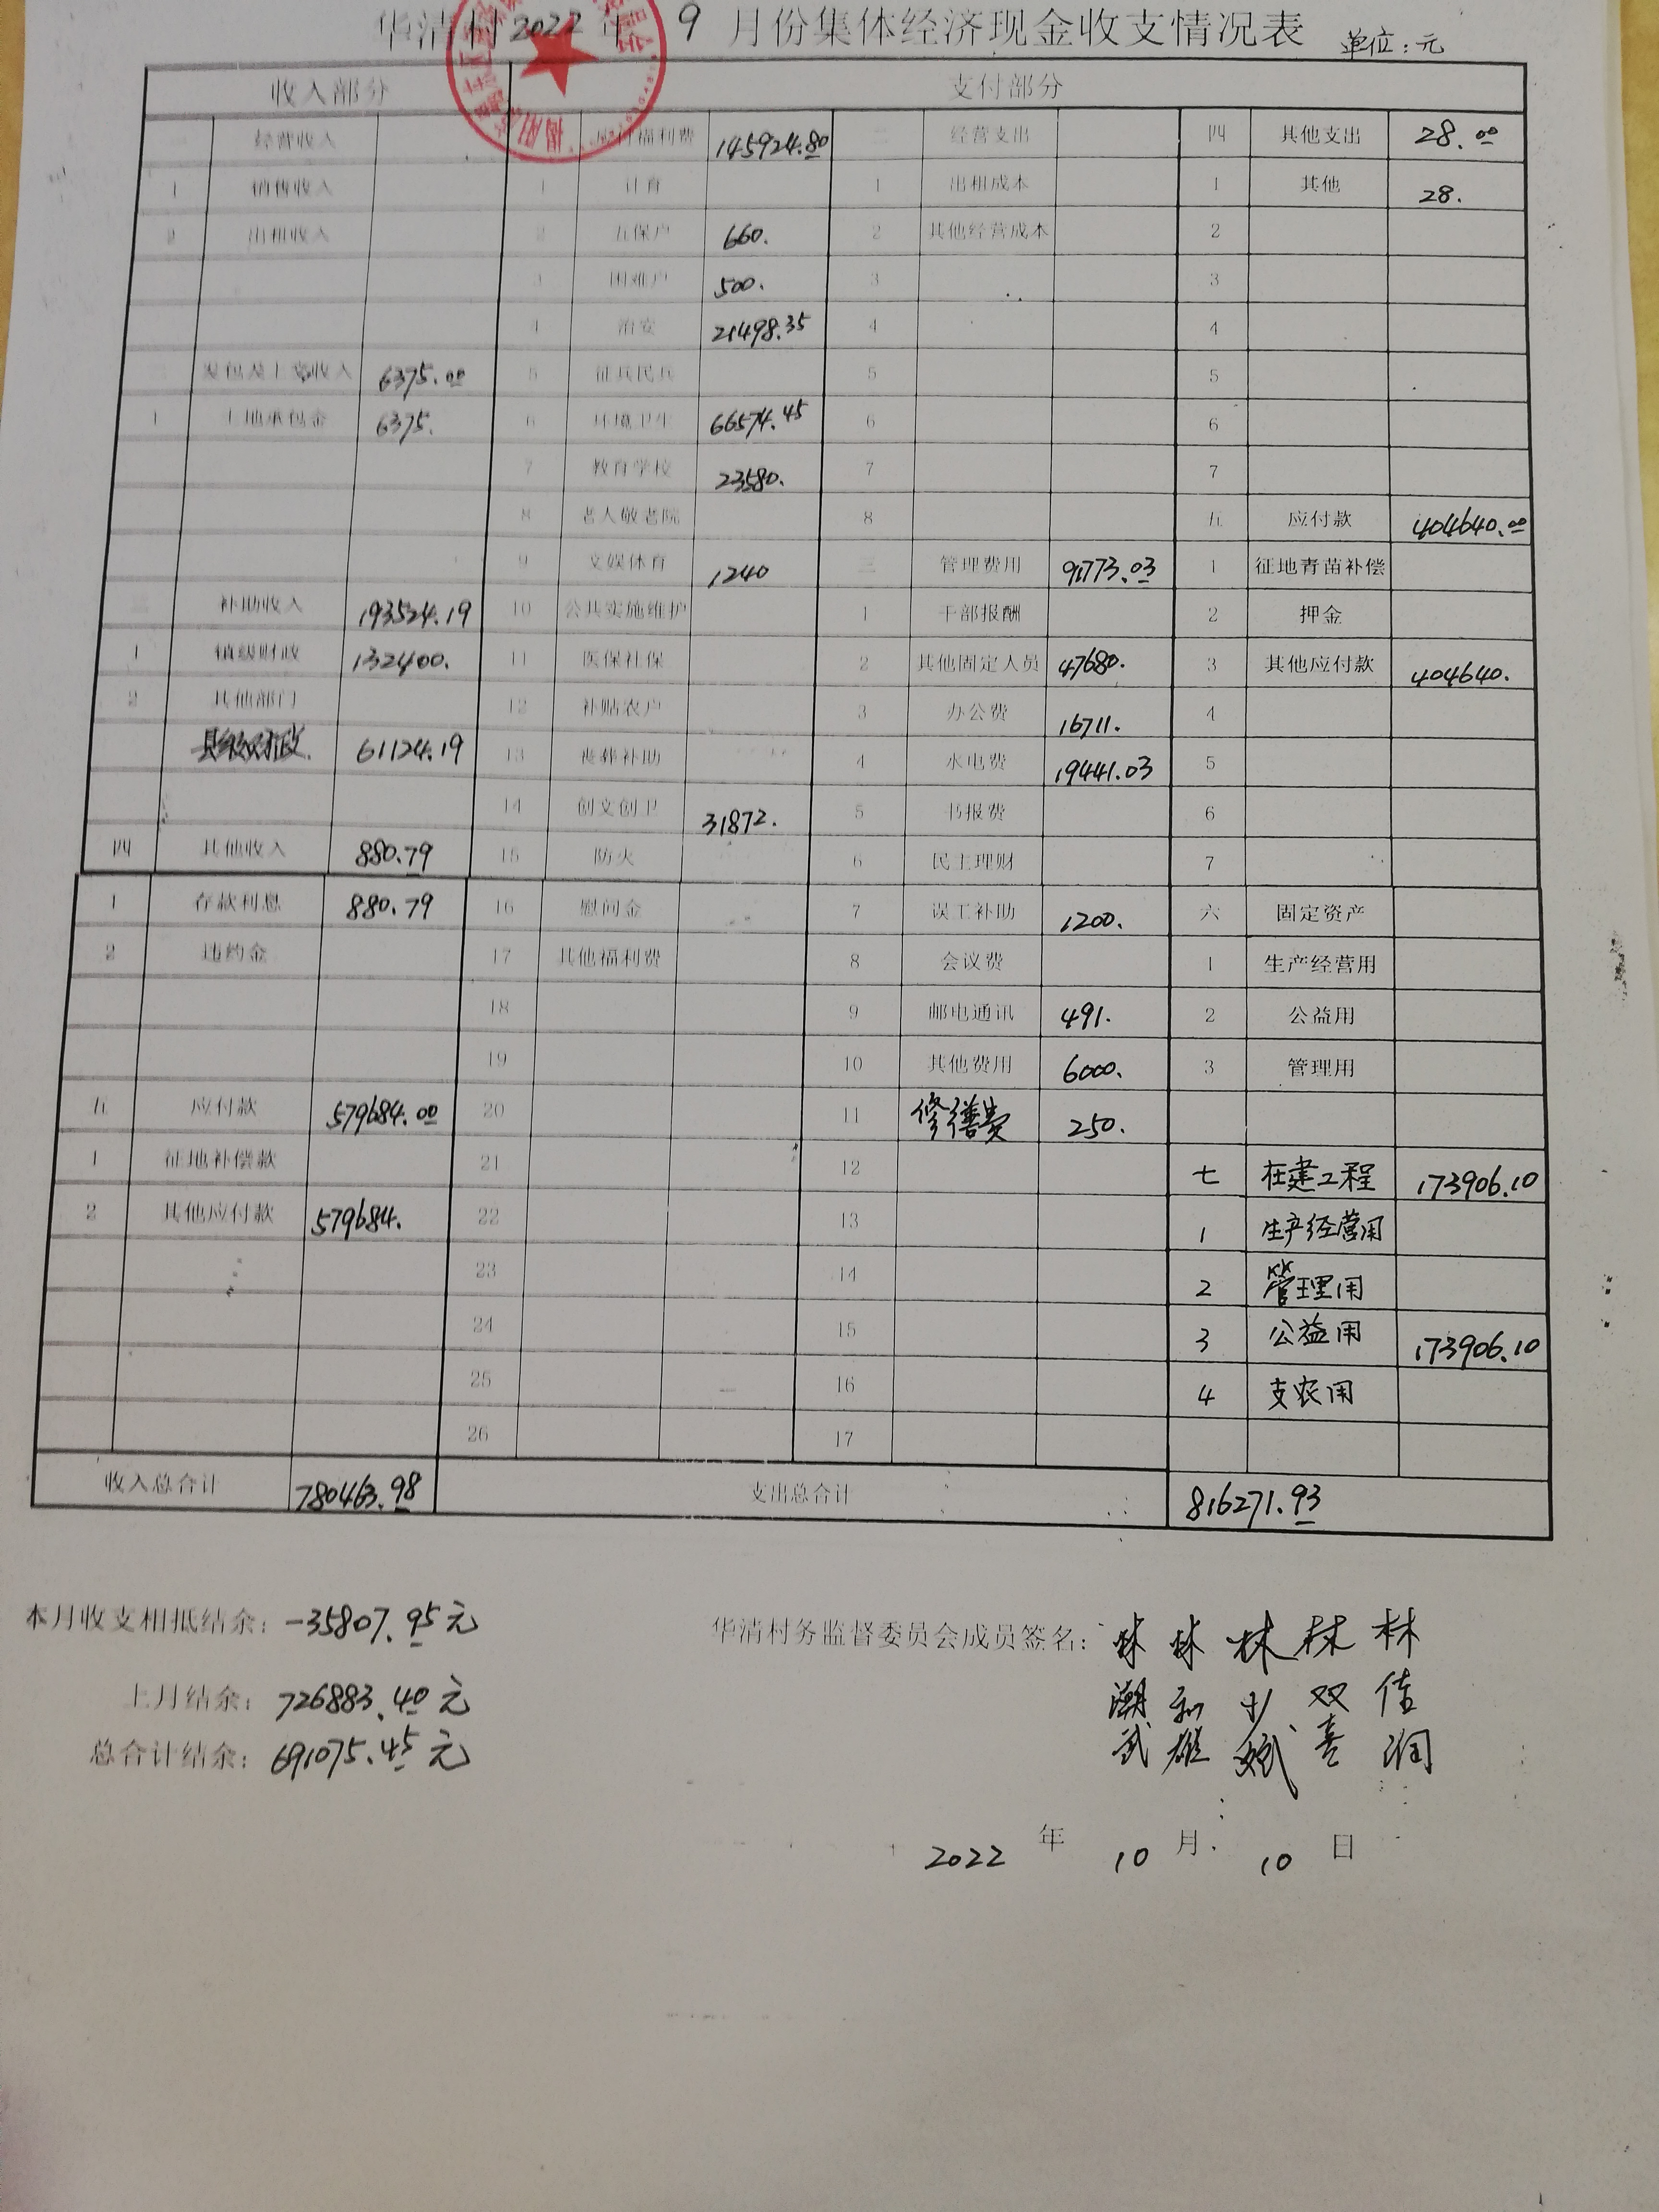 华清村 2022 年 9 月份集体经济现金收支情况表 单位:元
收入部分 支付部分
一 经营收入 福利费 145924.80 二 经营支出 四 其他支出 28.00
1 销售收入 1 计育 1 出租成本 1 其他 28.
2 出租收入 2 五保户 660. 2 其他经营成本 2
3 困难户 500. 3 3
4 治安 21498.35 4 4
二 发包及上交收入 6375.00 5 征兵民兵 5 5
1 土地承包金 6375. 6 环境卫生 66574.45 6 6
7 教育学校 23580. 7 7
8 老人敬老院 8 五 应付款 404640.00
9 文娱体育 1240 三 管理费用 91773.03 1 征地青苗补偿
三 补助收入 193524.19 10 公共实施维护 1 干部报酬 2 押金
1 镇级财政 132400. 11 医保社保 2 其他固定人员 47680. 3 其他应付款 404640.
2 其他部门 12 补贴农户 3 办公费 16711. 4
县级财政 61124.19 13 丧葬补助 4 水电费 19441.03 5
14 创文创卫 31872. 5 书报费 6
四 其他收入 880.79 15 防火 6 民主理财 7
1 存款利息 880.79 16 慰问金 7 误工补助 1200. 六 固定资产
2 违约金 17 其他福利费 8 会议费 1 生产经营用
18 9 邮电通讯 491. 2 公益用
19 10 其他费用 6000. 3 管理用
五 应付款 579684.00 20 11 修缮费 250.
1 征地补偿款 21 12 七 在建工程 173906.10
2 其他应付款 579684. 22 13 1 生产经营用
23 14 2 管理用
24 15 3 公益用 173906.10
25 16 4 支农用
26 17
收入总合计 780463.98 支出总合计 816271.93
本月收支相抵结余: -35807.95元
上月结余: 726883.40元
总合计结余: 691075.45元
华清村务监督委员会成员签名: 林潮武 林和雄 林少斌 林双喜 林佳润
2022 年 10 月 10 日